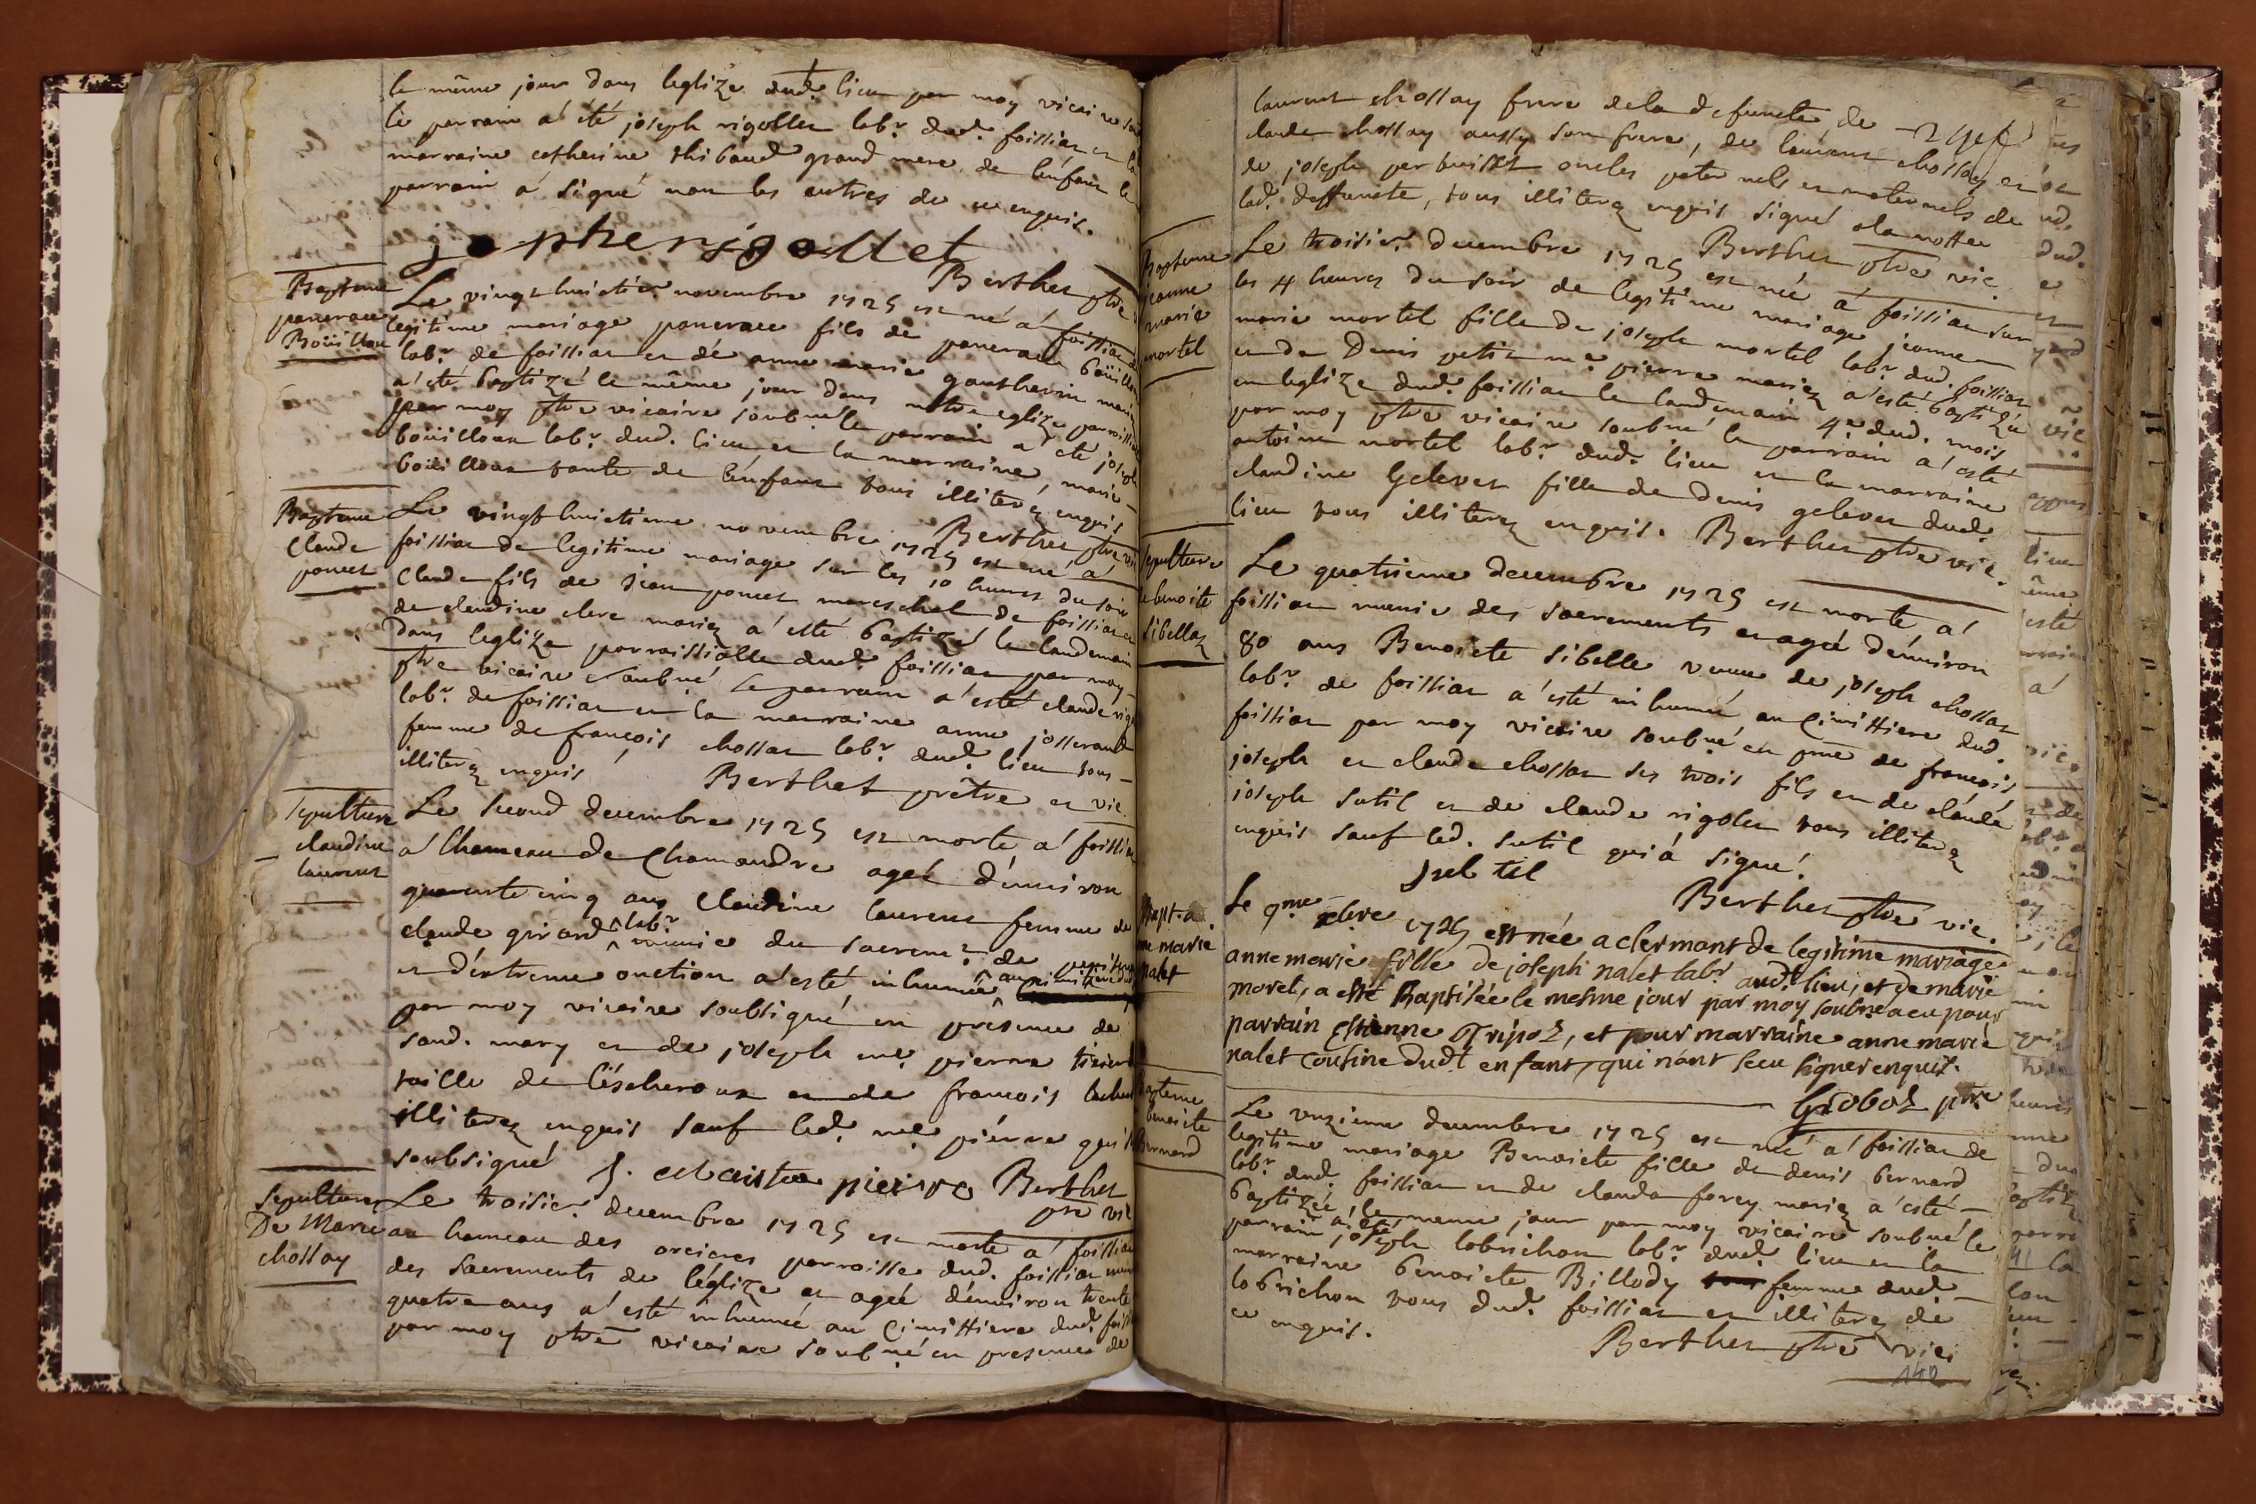 le même jour dans leglize dud. lieu par moy vicaire
le parrain a été joseph rigollet labr. dud. foissiat et la
marraine catherine thibaud grand mere de lenfant le
parrain a signé non les autres de ce enquis.
josephe rigollet
Berthet ptre
Bapteme
pancrace
Boüillou
Le vingt huictie novembre 1725 est né a foissiat de
legitime mariage pancrace fils de pancrace boüillou
labr. de foissiat et de anne marie gautherin mariez
a été baptizé le même jour dans notre eglize parroissialle
par moy ptre vicaire soubné le parrain a été joseph
boüilloux labr. dud. lieu et la marraine, marie
boüilloux tante de lenfant tous illiterez enquis
Berthet ptre vic
Bapteme
Claude
poncet
Le vingt huictieme novembre 1725 est né a
foissiat de legitime mariage sur les 10 heures du soir
Claude fils de jean poncet mareschal de foissiat et
de claudine clerc mariez a esté baptizé le landemain
dans leglize parroissialle dud. foissiat par moy
ptre vicaire soubné le parrain a esté claude
labr. de foissiat et la marraine anne josserand
femme de françois chossat labr. dud. lieu tous
illiterez enquis
Berthet prêtre et vic
Sepulture
claudine
laurent
Le second decembre 1725 est morte a foissiat
a lhameau de Chamandre ageé d'environ
quarente cinq ans Claudine laurent femme de
claude girard labr. munie du sacrem? de
et d'extreme onction a esté inhumeé au cimittiere
par moy vicaire soubsigné en presence de
sond. mary et de joseph me pierre
taille de léscheroux et de françois
illiterez enquis sauf led. me piérre qui
soubsigné J. Maistre pierre Berthet
ptre vic
Sepulture
De Marie
chossay
Le troisie. decembre 1725 est morte a foissiat
au hameau des orcieres parroisse dud. foissiat
des sacrements de léglize et ageé démviron trente
quatre ans a esté inhumeé au Cimittiere dud. foissiat
par moy ptre vicaire soubné en presence de
laurent chossay frere de la defuncte, de
claude chossay aussy son frere, de laurent chossay et
de joseph perbuisset oncles paternels et maternels de
lad. deffuncte, tous illiterez enquis signé a la nottee
Berthet ptre vic.
Bapteme
jeanne
marie
mortel
Le troisie. decembre 1725 est née a foissiat sur
les 4 heures du soir de legitime mariage jeanne
marie mortel fille de joseph mortel labr. dud. foissiat
et de Denis petit me pierre mariez a esté baptizée
en leglize dud. foissiat le landemain 4e dud. mois
par moy ptre vicaire soubné le parrain a esté
antoine mortel labr. dud. lieu et la marraine
claudine Gelever fille de Denis gelever dud.
lieu tous illiterez enquis. Berthet ptre vic.
sepulture
benoite
sibellas
Le quatrieme decembre 1725 est morte a
foissiat munie des sacrements et ageé démviron
80 ans Benoiete sibelle veuve de joseph chossat
labr. de foissiat a esté inhumeé au Cimittiere dud.
foissiat par moy vicaire soubné en pnce de françois
joseph et claude chossat ses trois fils et de claude
joseph sutil et de claude rigolet tous illiterez
enquis sauf led. sutil qui a signé.
subtil
Berthet ptre vic.
Bapt.
ne marie
nalet
Le 9me xbre 1725 est née a clermont de legitime mariage
anne marie fille de joseph nalet labr. aud. lieu, et de marie
morel, a esté Baptisée le mesme jour par moy soubné a eu pour
parrain estienne Tripoz, et pour marraine anne marie
nalet Cousine dud.t enfant, qui n'ont seeu signer enquis.
Groboz ptre
bapteme
benoiete
Bernard
Le unzieme decembre 1725 est né a foissiat de
legitime mariage Benoiete fille de denis bernard
labr. dud. foissiat et de clauda forey mariez a esté
baptizeé le meme jour par moy vicaire soubné le
parrain a été joseph labrichon labr. dud. lieu et la
marraine benoiete Billody femme dud.
labrichon tous dud. foissiat et illiterez de
ce enquis.
Berthet ptre vic
140